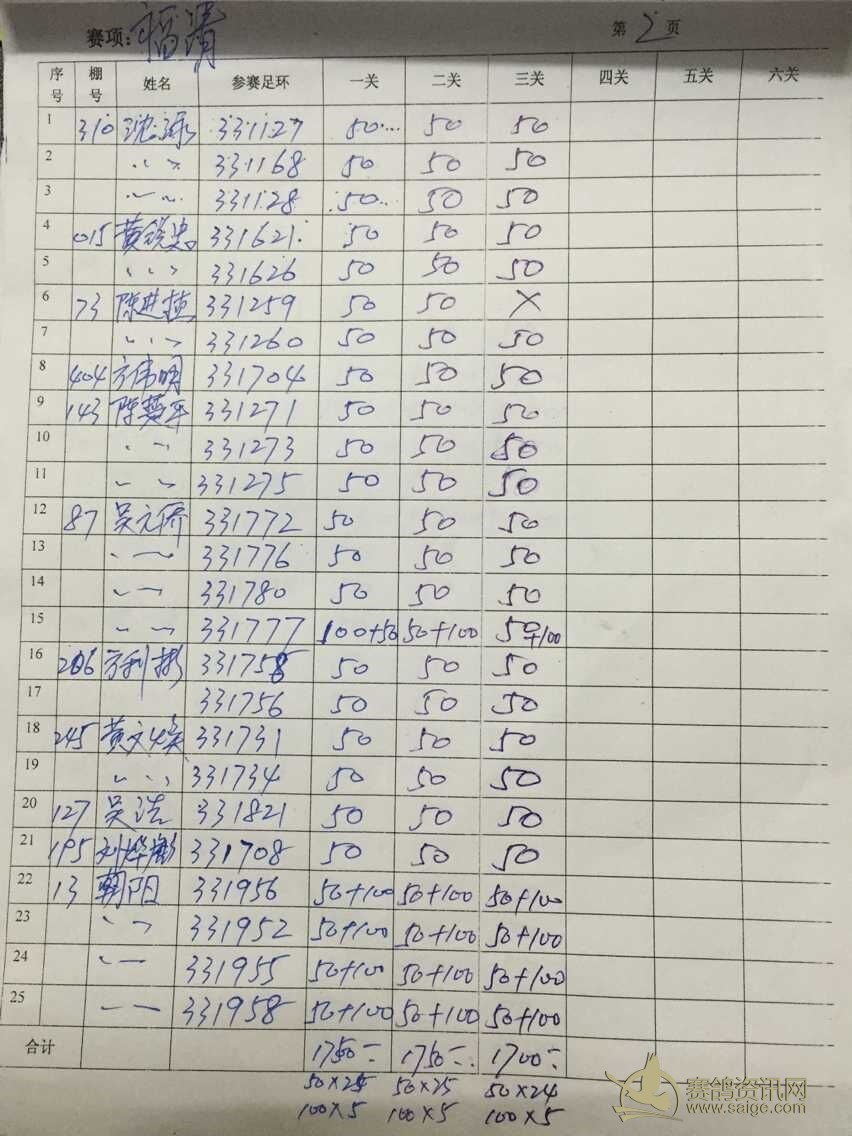 赛项：福清 第 2 页
序号 棚号 姓名 参赛足环 一关 二关 三关 四关 五关 六关
1 310 沈 331127 50 50 50
2 〃 331168 50 50 50
3 〃 331128 50 50 50
4 015 黄铁忠 331621 50 50 50
5 〃 331626 50 50 50
6 73 陈进 331259 50 50 ×
7 〃 331260 50 50 50
8 404 方伟明 331704 50 50 50
9 143 陈 331271 50 50 50
10 〃 331273 50 50 50
11 〃 331275 50 50 50
12 87 吴元侨 331772 50 50 50
13 〃 331776 50 50 50
14 〃 331780 50 50 50
15 〃 331777 100+50 50+100 50+100
16 206 方利彬 331758 50 50 50
17 331756 50 50 50
18 245 黄文焕 331731 50 50 50
19 〃 331734 50 50 50
20 127 吴浩 331821 50 50 50
21 195 刘烨 331708 50 50 50
22 13 朝阳 331956 50+100 50+100 50+100
23 〃 331952 50+100 50+100 50+100
24 〃 331955 50+100 50+100 50+100
25 〃 331958 50+100 50+100 50+100
合计 1750 1750 1700
50×25 50×25 50×24
100×5 100×5 100×5
赛鸽资讯网
www.saige.com